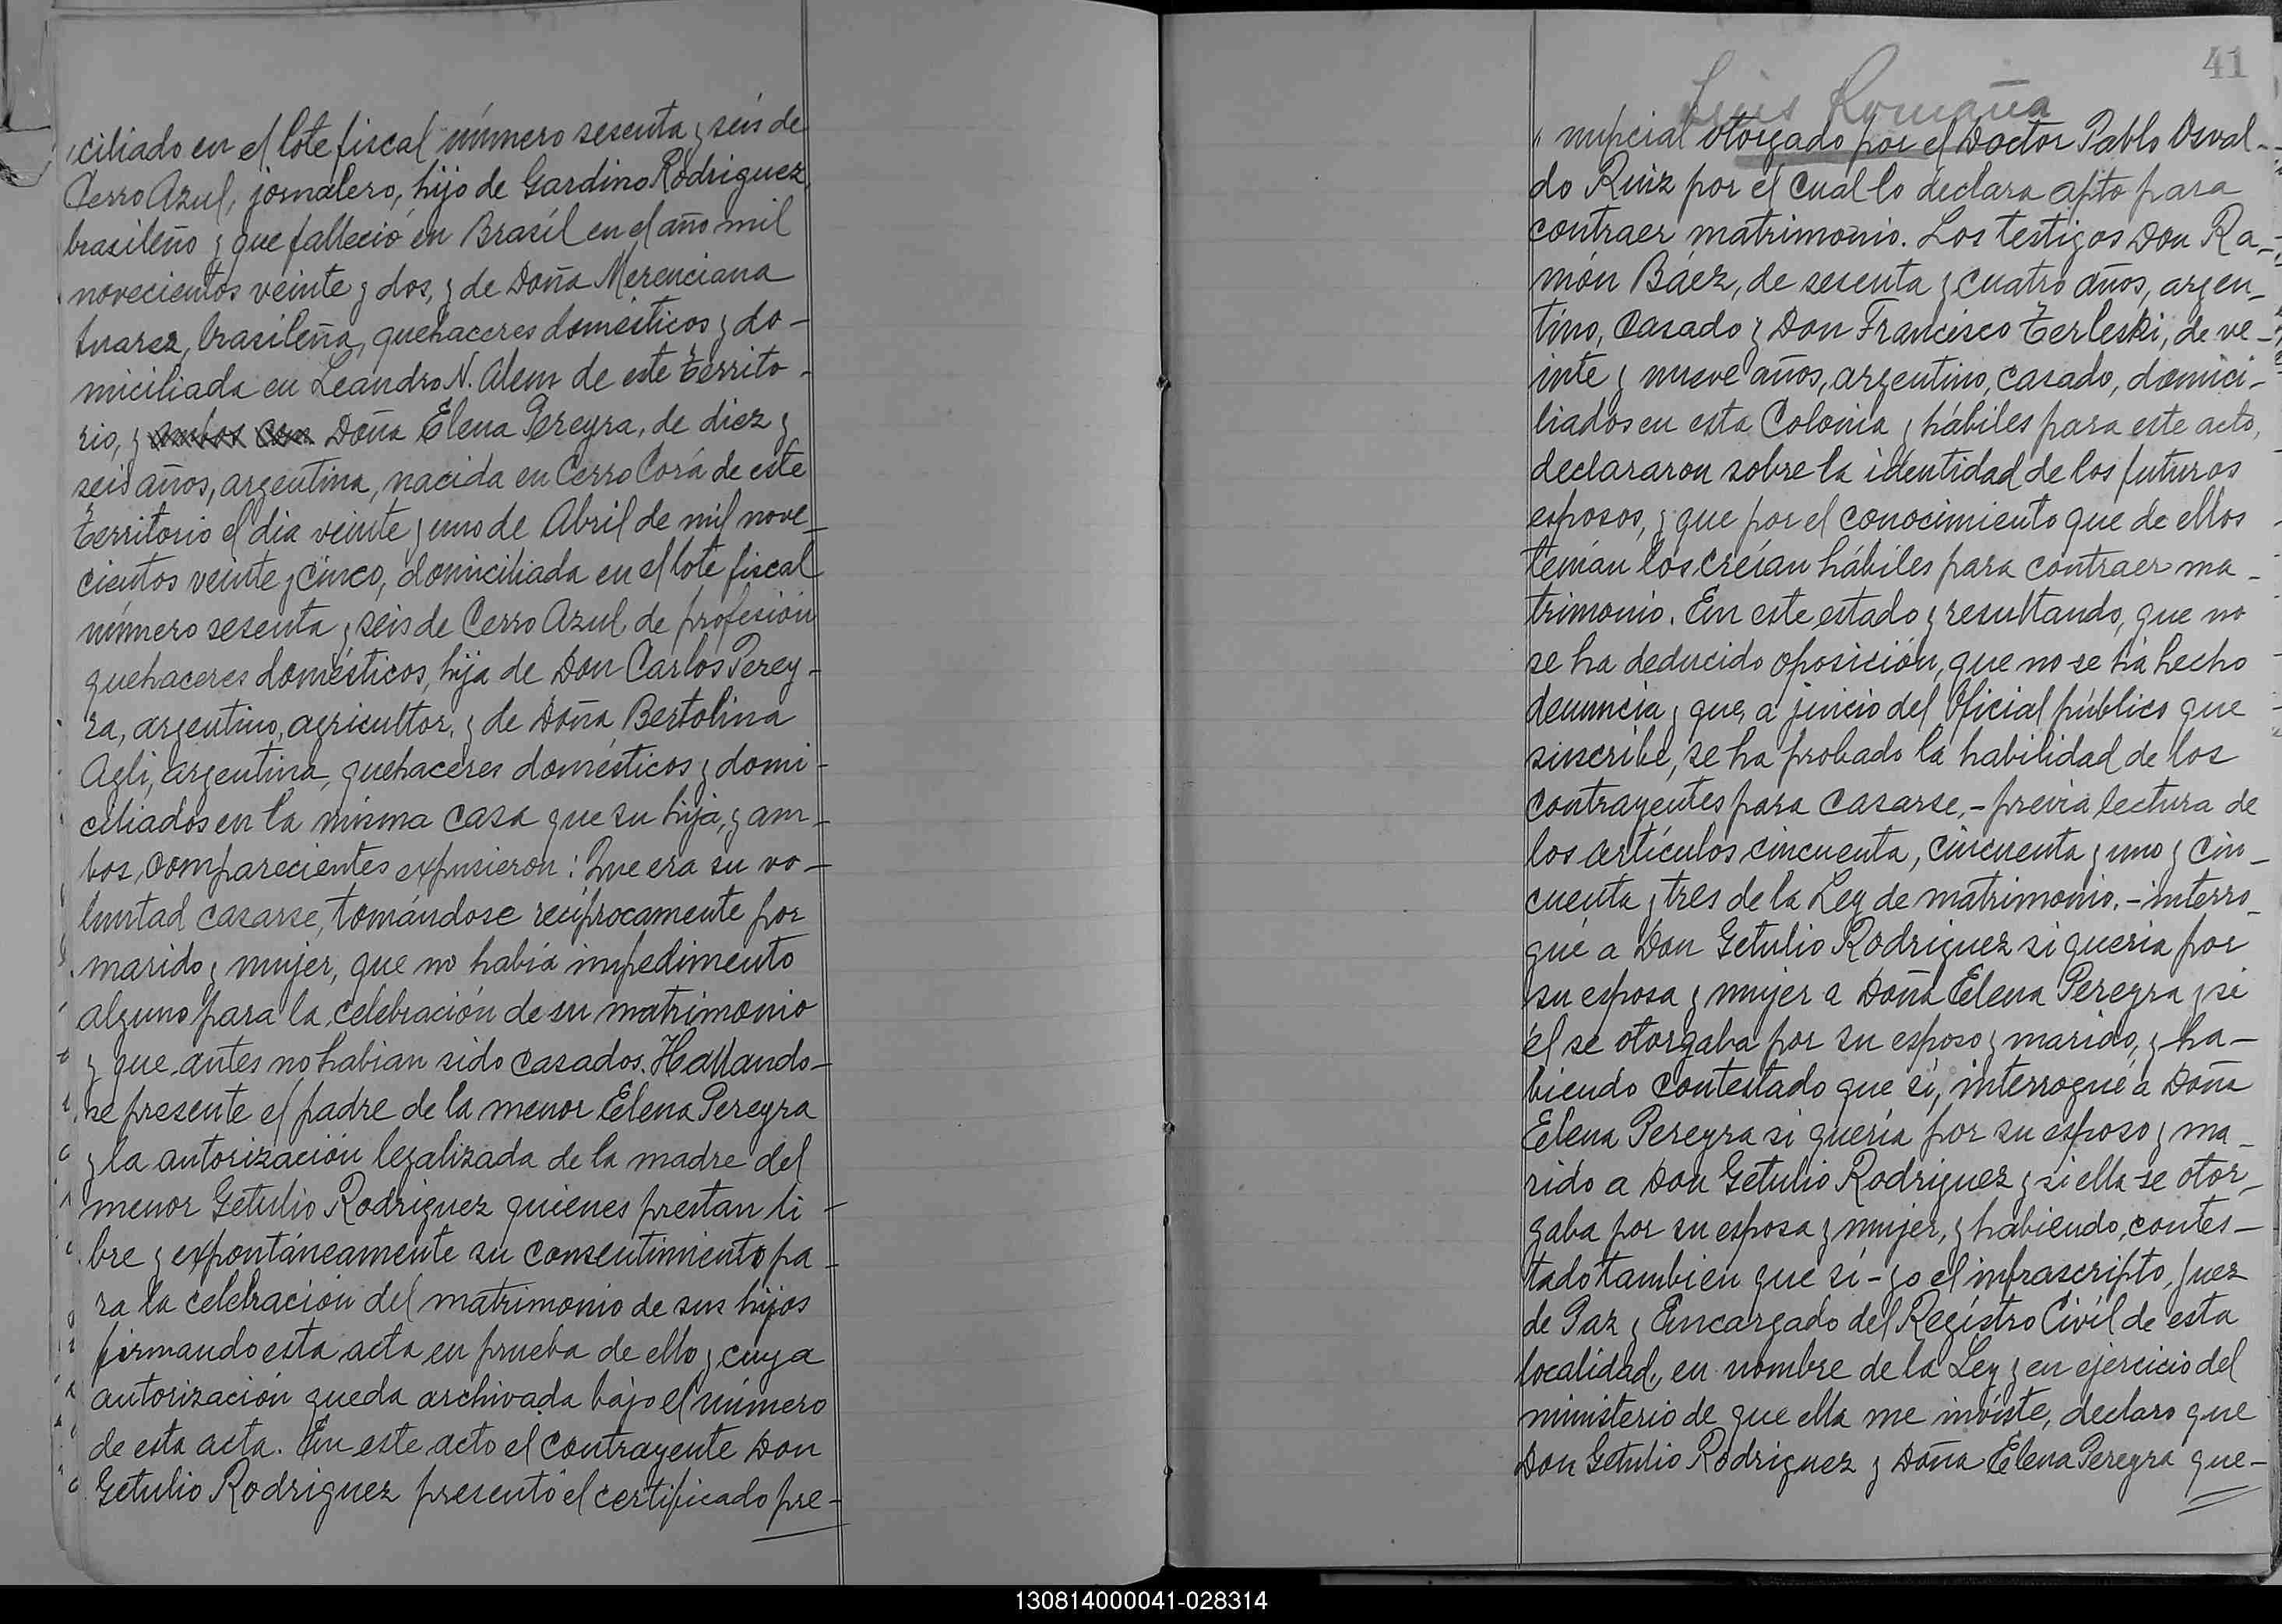 ciliado en el lote fiscal número sesenta y seis de
Cerro Azul, jornalero, hijo de Gardino Rodriguez,
brasileño y que falleció en Brasíl en el año mil
novecientos veinte y dos, y de Doña Merenciana
brasileña, quehaceres domésticos y do-
miciliada en Leandro N. Alem de este territo-
rio, y ambos con Doña Elena Pereyra, de diez y
seis años, argentina, nacida en Cerro Corá de este
territorio el dia veinte y uno de Abril de mil nove-
cientos veinte y cinco, domiciliada en el lote fiscal
número sesenta y seis de Cerro Azul, de profesión
quehaceres domésticos, hija de Don Carlos Perey-
ra, argentino, agricultor, y de Doña Bertolina
Agli, argentina, quehaceres domésticos y domi-
ciliados en la misma casa que su hija, y am-
bos, comparecientes expusieron: Que era su vo-
luntad casarse, tomándose recíprocamente por
marido y mujer, que no había impedimento
alguno para la celebración de su matrimonio
y que antes no habian sido casados. Hallando-
se presente el padre de la menor Elena Pereyra
y la autorización legalizada de la madre del
menor Getulio Rodriguez quienes prestan li-
bre y expontáneamente su consentimiento pa-
ra la celebración del matrimonio de sus hijos
firmando esta acta en prueba de ello y cuya
autorización queda archivada bajo el número
de esta acta. En este acto el contrayente Don
Getulio Rodriguez presentó el certificado pre-
41
Luis Romaña
" nupcial otorgado por el Doctor Pablo Osval-
do Ruiz por el cual lo declara apto para
contraer matrimonio. Los testigos Don Ra-
món Báez, de sesenta y cuatro años, argen-
tino, casado y Don Francisco Terleski, de ve-
inte y nueve años, argentino, casado, domici-
liados en esta Colonia y hábiles para este acto,
declararon sobre la identidad de los futuros
esposos, y que por el conocimiento que de ellos
tenían los creían hábiles para contraer ma-
trimonio. En este estado y resultando, que no
se ha deducido oposición, que no se ha hecho
denuncia y que, a juicio del Oficial público que
suscribe, se ha probado la habilidad de los
contrayentes para casarse,- previa lectura de
los artículos cincuenta, cincuenta y uno y cin-
cuenta y tres de la Ley de matrimonio.- interro-
gué a Don Getulio Rodriguez si queria por
su esposa y mujer a Doña Elena Pereyra y si
él se otorgaba por su esposo y marido, y ha-
biendo contestado que sí, interrogué a Doña
Elena Pereyra si quería por su esposo y ma-
rido a Don Getulio Rodriguez y si ella se otor-
gaba por su esposa y mujer, y habiendo, contes-
tado tambien que sí- yo el infrascripto, Juez
de Paz y Encargado del Regístro Civíl de esta
localidad, en nombre de la Ley y en ejercicio del
ministerio de que ella me inviste, declaro que
Don Getulio Rodriguez y Doña Elena Pereyra que-
130814000041-028314